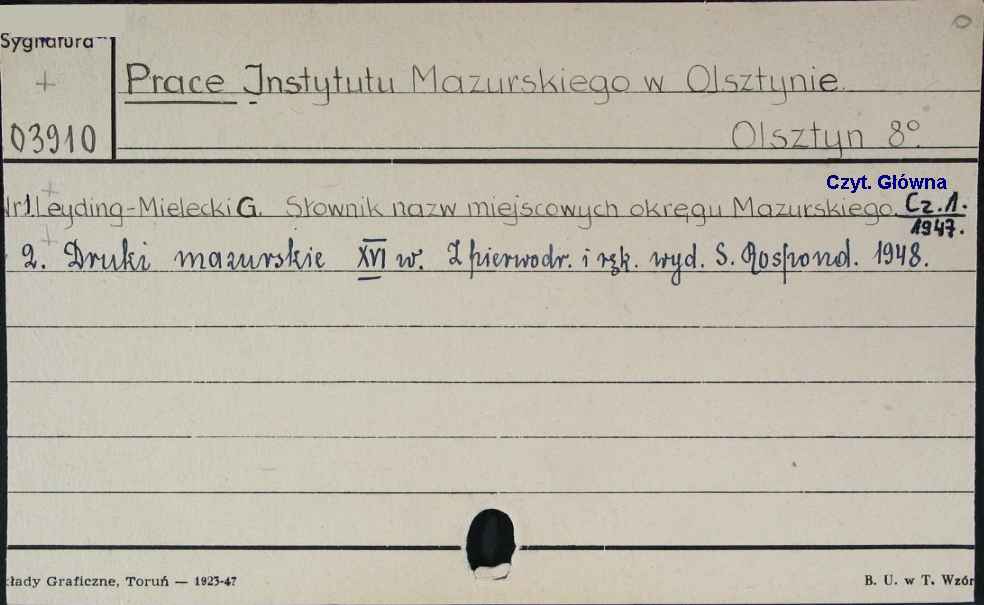 Sygnatura
+
Prace Instytutu Mazurskiego w Olsztynie.
03910
Olsztyn 8°.
Czyt. Główna
Nr1. Leyding-Mielecki G. Słownik nazw miejscowych okręgu Mazurskiego. Cz.1.
1947.
2. Druki mazurskie XVI w. Z pierwodr. i ręk. wyd. S. Rospond. 1948.
kłady Graficzne, Toruń — 1923-47
B. U. w T. Wzór